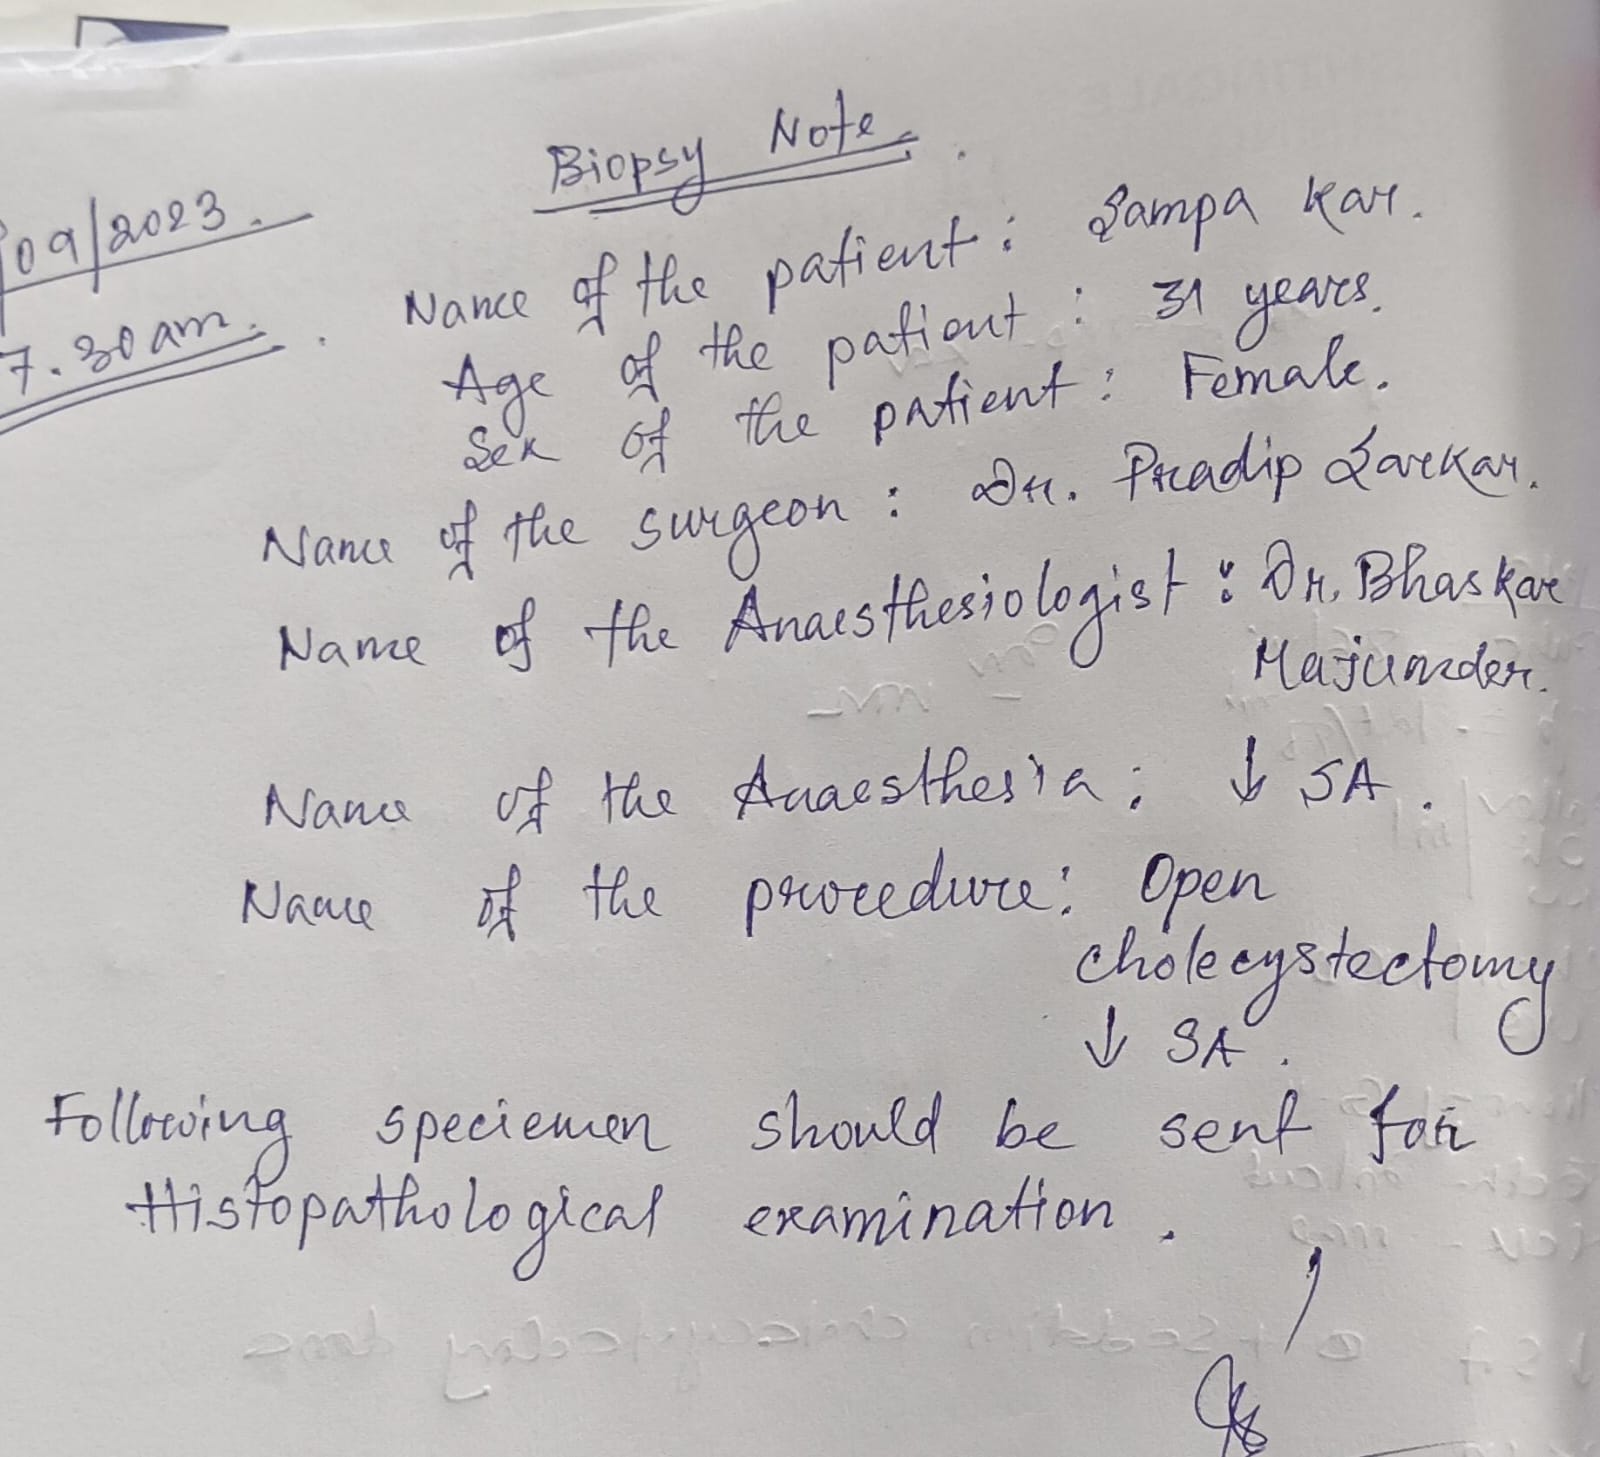 Biopsy Note.
09/2023.
7.30 am.
Name of the patient : Sampa Kar.
Age of the patient : 31 years.
Sex of the patient : Female.
Name of the surgeon : Dr. Pradip Sarkar.
Name of the Anaesthesiologist : Dr. Bhaskar
Majumder.
Name of the Anaesthesia : ↓ SA.
Name of the procedure : Open
cholecystectomy
↓ SA.
Following speciemen should be sent for
Histopathological examination.